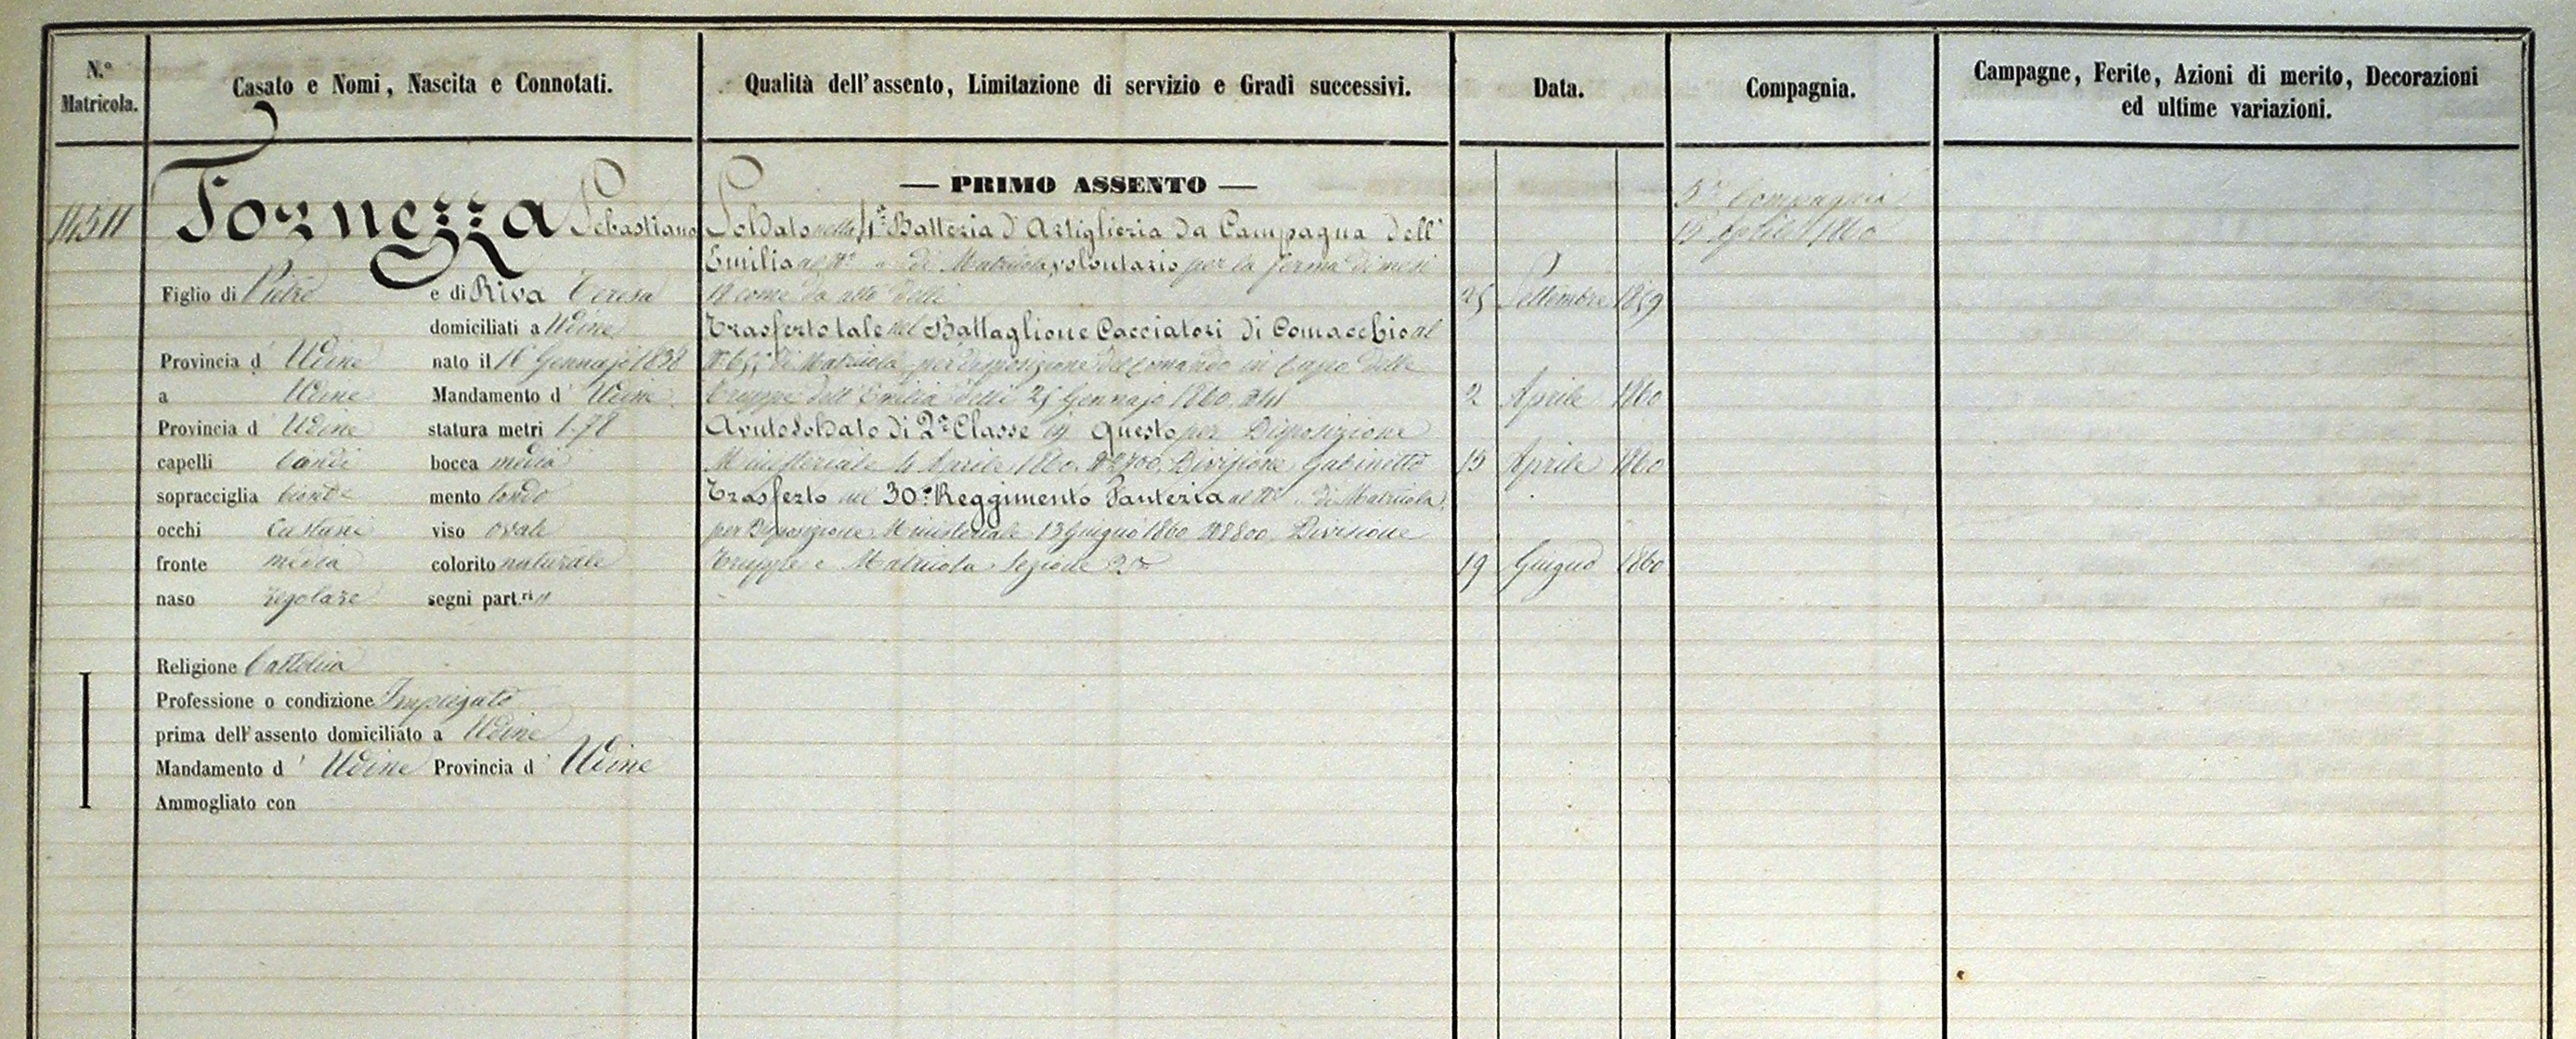 N.o Matricola.
Casato e Nomi, Nascita e Connotati.
Qualità dell'assento, Limitazione di servizio e Gradi successivi.
Data.
Compagnia.
Campagne, Ferite, Azioni di merito, Decorazioni
ed ultime variazioni.
14511
Tornezza Sebastiano
Figlio di Pietro e di Riva Teresa
domiciliati a Udine
Provincia d Udine nato il 16 Gennajo 1838
a Udine Mandamento d' Udine
Provincia d' Udine statura metri 1.78
capelli biondi bocca media
sopracciglia bionde mento tondo
occhi castani viso ovale
fronte media colorito naturale
naso regolare segni part.ri "
Religione Cattolica
Professione o condizione Impiegato
prima dell'assento domiciliato a Udine
Mandamento d' Udine Provincia d' Udine
Ammogliato con
— PRIMO ASSENTO —
Soldato nella 4a Batteria d'Artiglieria da Campagna dell'
Emilia al No " di Matricola, volontario per la ferma di mesi
18 come da atto delli 25 Settembre 1859
Trasferto tale nel Battaglione Cacciatori di Comacchio al
di Matricola per disposizione del Comando in Capo delle
Truppe dell'Emilia delli 25 Gennajo 1860 2 Aprile 1860
Avuto Soldato di 2a Classe in questo per Disposizione
Ministeriale 4 Aprile 1860 No 2700 Divisione Gabinetto 15 Aprile 1860
Trasferto nel 30o Reggimento Fanteria al No .. di Matricola,
per Disposizione Ministeriale 13 Giugno 1860 No 8800 Divisione
Truppe e Matricola Sezione 2a 19 Giugno 1860
5a Compagnia
15 Aprile 1860